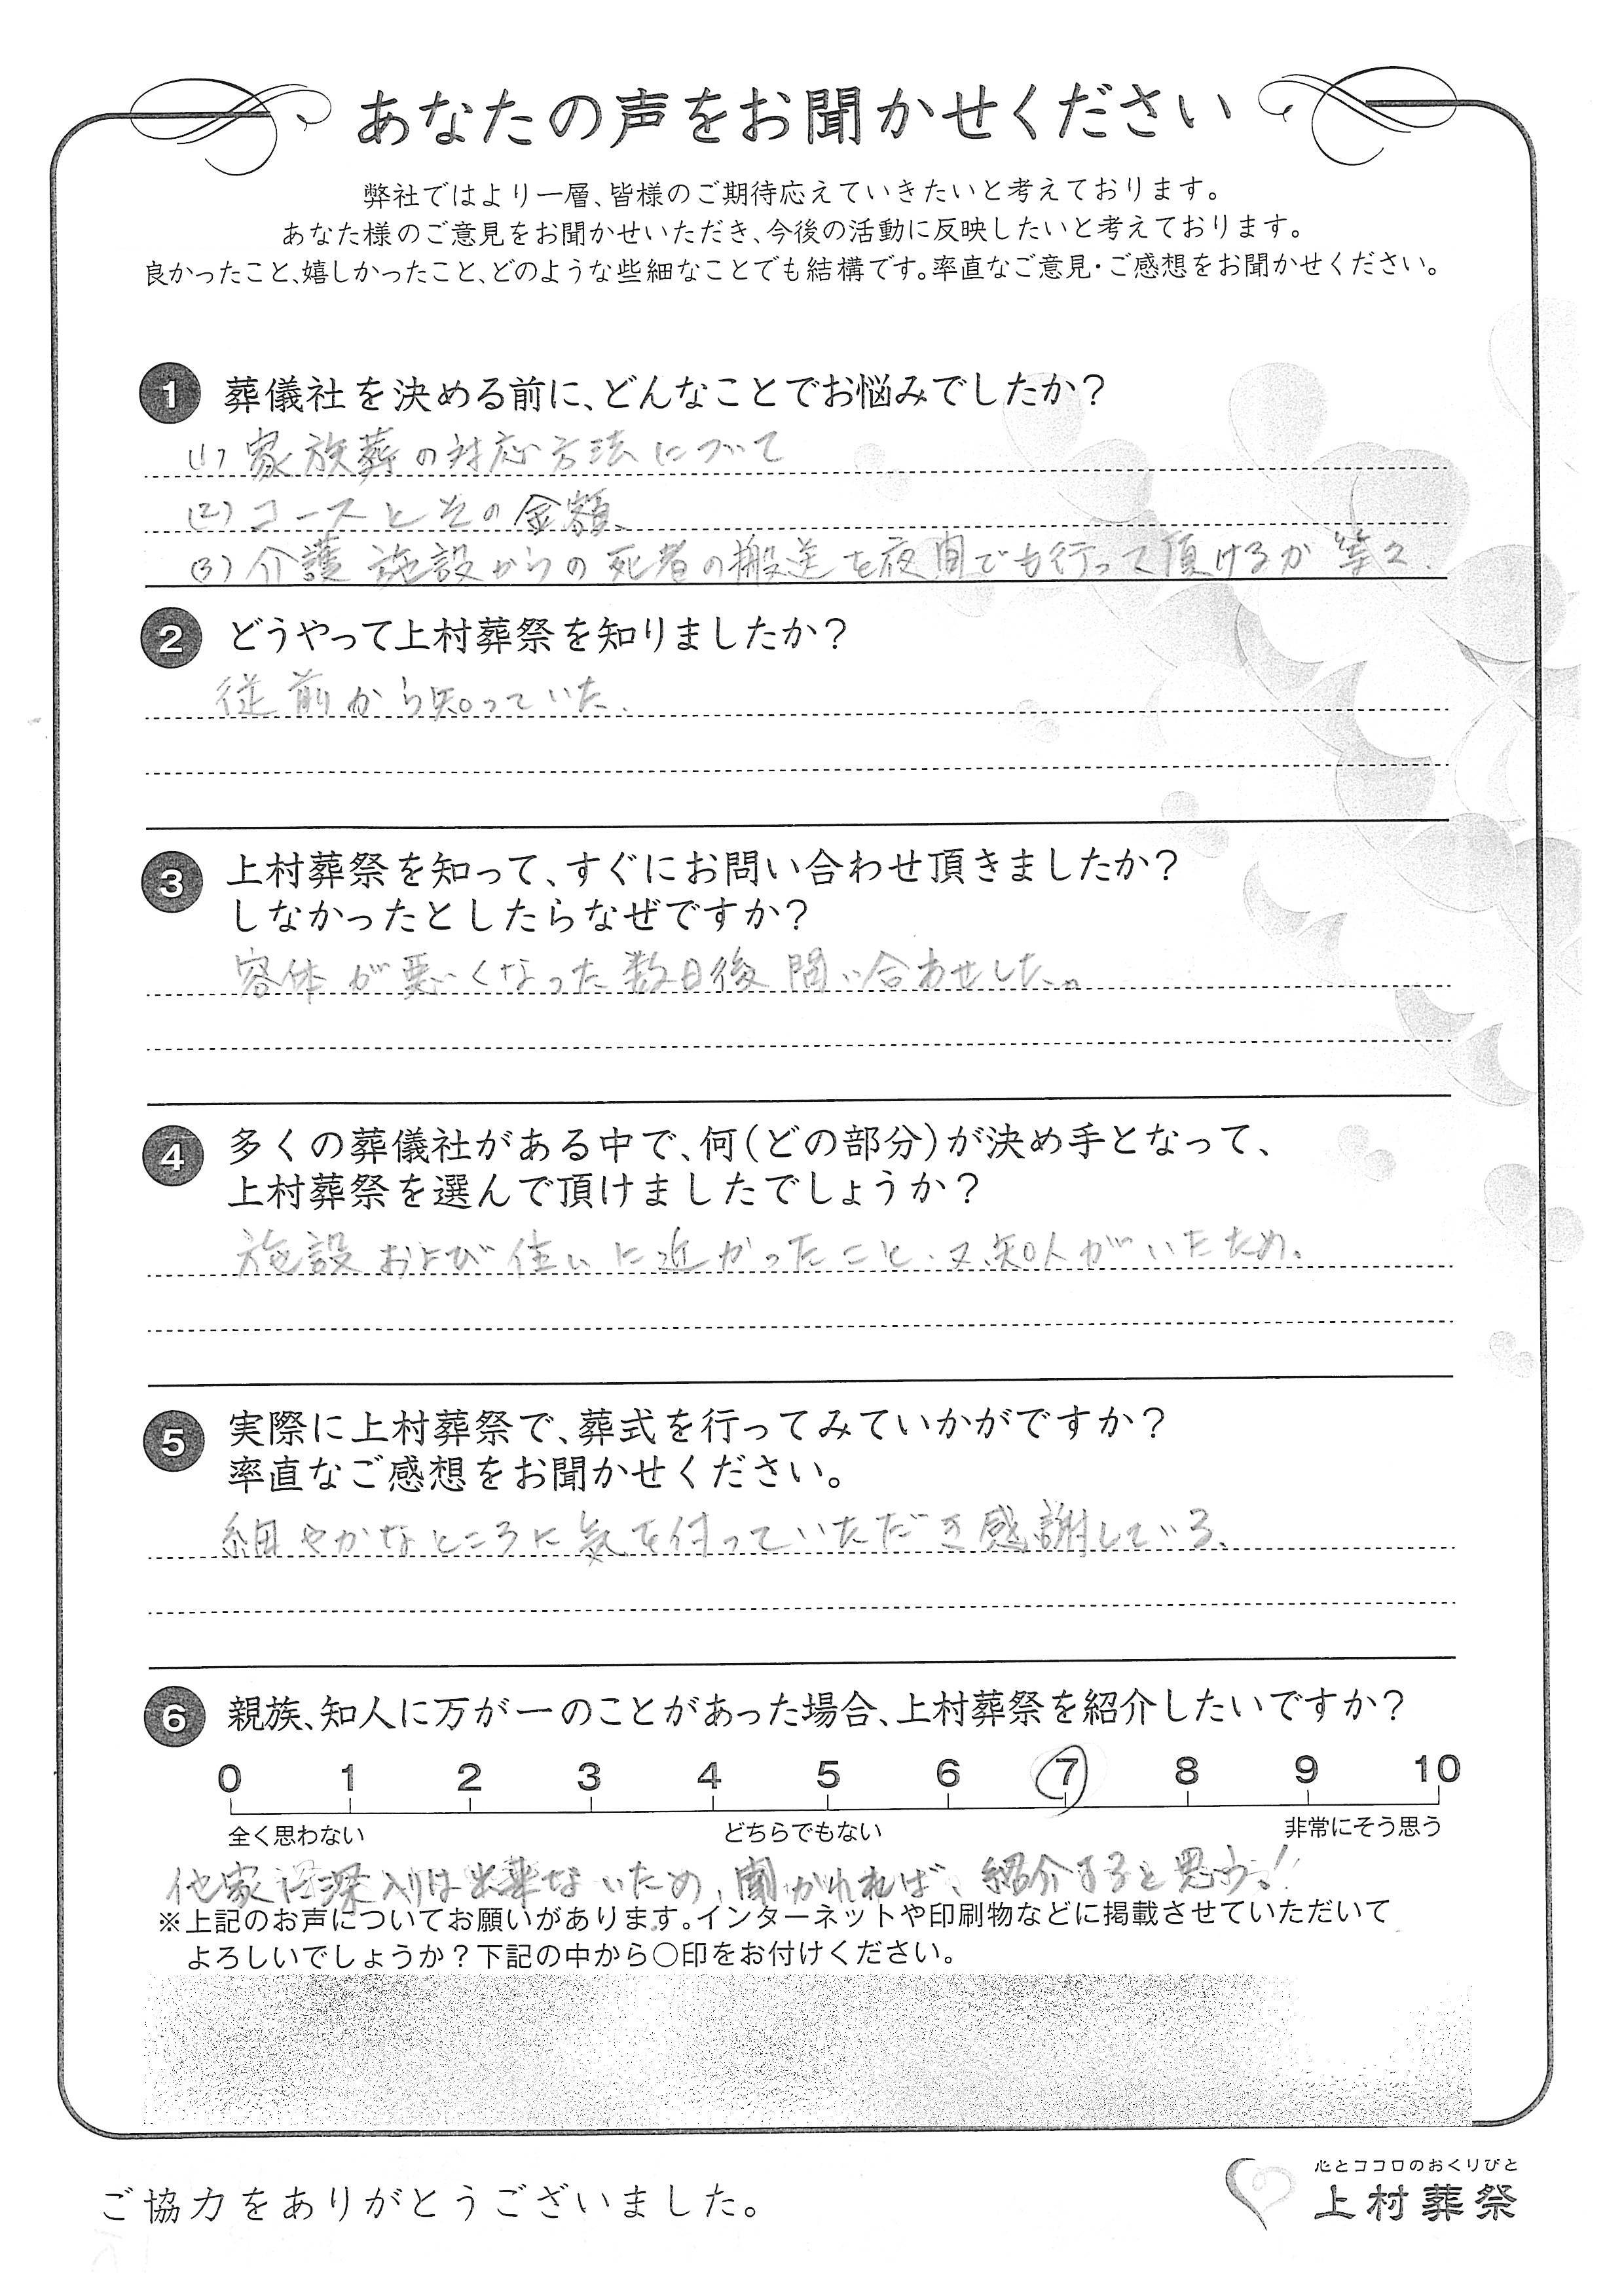 あなたの声をお聞かせください
弊社ではより一層、皆様のご期待応えていきたいと考えております。
あなた様のご意見をお聞かせいただき、今後の活動に反映したいと考えております。
良かったこと、嬉しかったこと、どのような些細なことでも結構です。率直なご意見・ご感想をお聞かせください。
1 葬儀社を決める前に、どんなことでお悩みでしたか？
(1) 家族葬の対応方法について
(2) コースとその金額、
(3) 介護施設からの死者の搬送を夜間でも行って頂けるか 等々.
2 どうやって上村葬祭を知りましたか？
従前から知っていた.
3 上村葬祭を知って、すぐにお問い合わせ頂きましたか？
しなかったとしたらなぜですか？
容体が悪くなった数日後問い合わせした。
4 多くの葬儀社がある中で、何（どの部分）が決め手となって、
上村葬祭を選んで頂けましたでしょうか？
施設および住いに近かったこと、又、知人がいたため。
5 実際に上村葬祭で、葬式を行ってみていかがですか？
率直なご感想をお聞かせください。
細やかなところに気を付っていただき感謝している、
6 親族、知人に万が一のことがあった場合、上村葬祭を紹介したいですか？
0 1 2 3 4 5 6 7 8 9 10
全く思わない どちらでもない 非常にそう思う
他家に深入りは出来ないため、聞かれれば、紹介すると思う!
※上記のお声についてお願いがあります。インターネットや印刷物などに掲載させていただいて
よろしいでしょうか？下記の中から〇印をお付けください。
ご協力をありがとうございました。
心とココロのおくりびと
上村葬祭